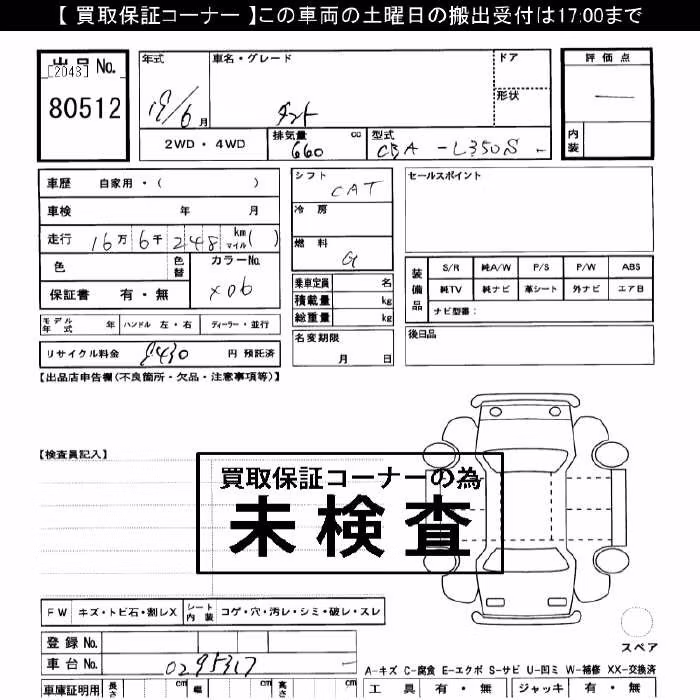 【 買取保証コーナー 】この車両の土曜日の搬出受付は17:00まで
出品 No.
[2043]
80512
年式
19/6 月
車名・グレード
タント
ドア
形状
評価点
—
内装
2WD・4WD
排気量 cc
660
型式
CBA -L350S -
車歴 自家用・( )
車検 年 月
走行 16万 6千 248 km マイル ( )
色 色替 カラーNo.
X06
保証書 有・無
シフト
CAT
冷房
燃料
G
乗車定員 名
積載量 kg
総重量 kg
セールスポイント
装備品
S/R 純A/W P/S P/W ABS
純TV 純ナビ 革シート 外ナビ エア日
ナビ型番:
モデル年式 年 ハンドル 左・右 ディーラー・並行
リサイクル料金 8430 円 預託済
名変期限
月 日
後日品
【出品店申告欄(不良箇所・欠品・注意事項等)】
【検査員記入】
買取保証コーナーの為
未検査
FW キズ・トビ石・割レX シート内装 コゲ・穴・汚レ・シミ・破レ・スレ
登録 No.
車台 No. 0295317 —
車庫証明用 長さ cm 幅 cm 高さ cm
スペア
A-キズ C-腐食 E-エクボ S-サビ U-凹ミ W-補修 XX-交換済
工具 有・無 ジャッキ 有・無